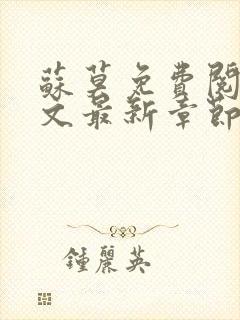 蘇莫免費閱
文最新章節
鍾麗英